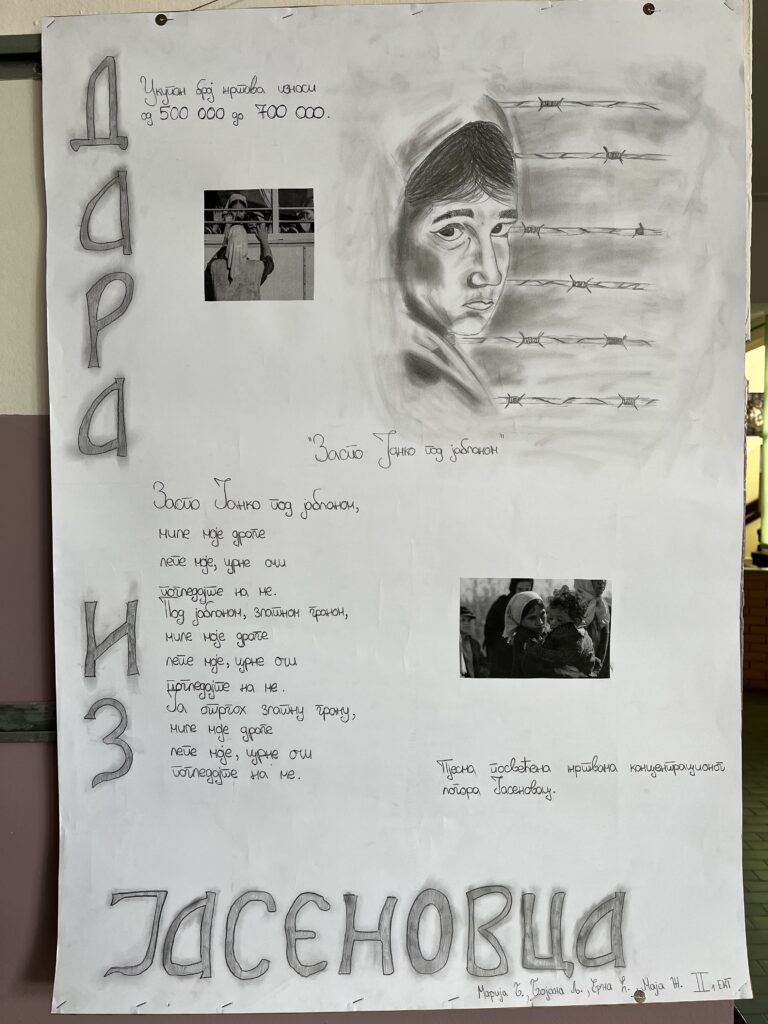 ДаРа
ИЗ
ЈаСЕНОВЦа
Укупан број жртава износи
од 500 000 до 700 000.
"Заспо Јанко под јабланом"
Заспо Јанко под јабланом,
миле моје драге
лепе моје, црне очи
погледајте на ме.
Под јабланом, златном граном,
миле моје драге
лепе моје, црне очи
погледајте на ме.
Ја отргох златну грану,
миле моје драге
лепе моје, црне очи
погледајте на ме.
Пјесма посвећена жртвама концентрационог
логора Јасеновац.
Марија Бојана Ерна Маја Ж. II